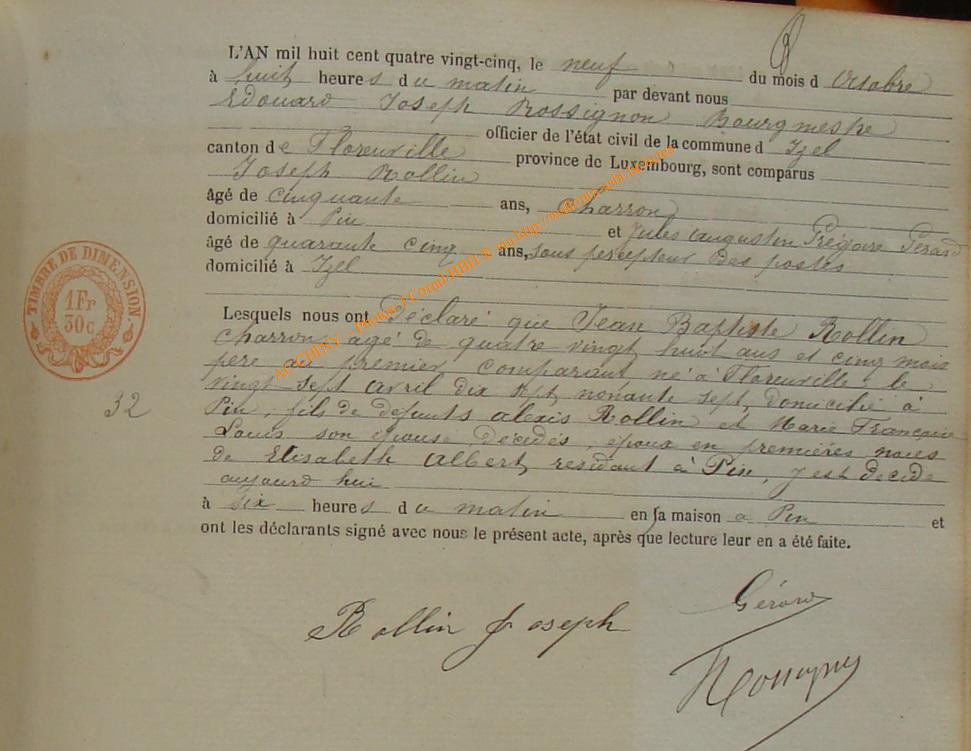 L'AN mil huit cent quatre vingt-cinq, le neuf du mois d Octobre
à huit heures du matin par devant nous
Edouard Joseph Rossignon Bourgmestre
officier de l'état civil de la commune d Izel
canton de Florenville province de Luxembourg, sont comparus
Joseph Rollin
âgé de cinquante ans, charron
domicilié à Pin et Jules Augustin Grégoire Gérard
âgé de quarante cinq ans, sous percepteur des postes
domicilié à Izel
Lesquels nous ont Déclaré que Jean Baptiste Rollin
charron, agé de quatre vingt huit ans et cinq mois
père au premier comparant né à Florenville le
vingt sept avril dix sept nonante sept, domicilié à
Pin, fils de defunts alexis Rollin et Marie Françoise
Louis son épouse décédés, époux en premières noces
de Elisabeth Albert, résidant à Pin, y est décédé
aujourd'hui
à six heures du matin en sa maison à Pin et
ont les déclarants signé avec nous le présent acte, après que lecture leur en a été faite.
Rollin Joseph
Gérard
TIMBRE DE DIMENSION
1 Fr
30 c.
32